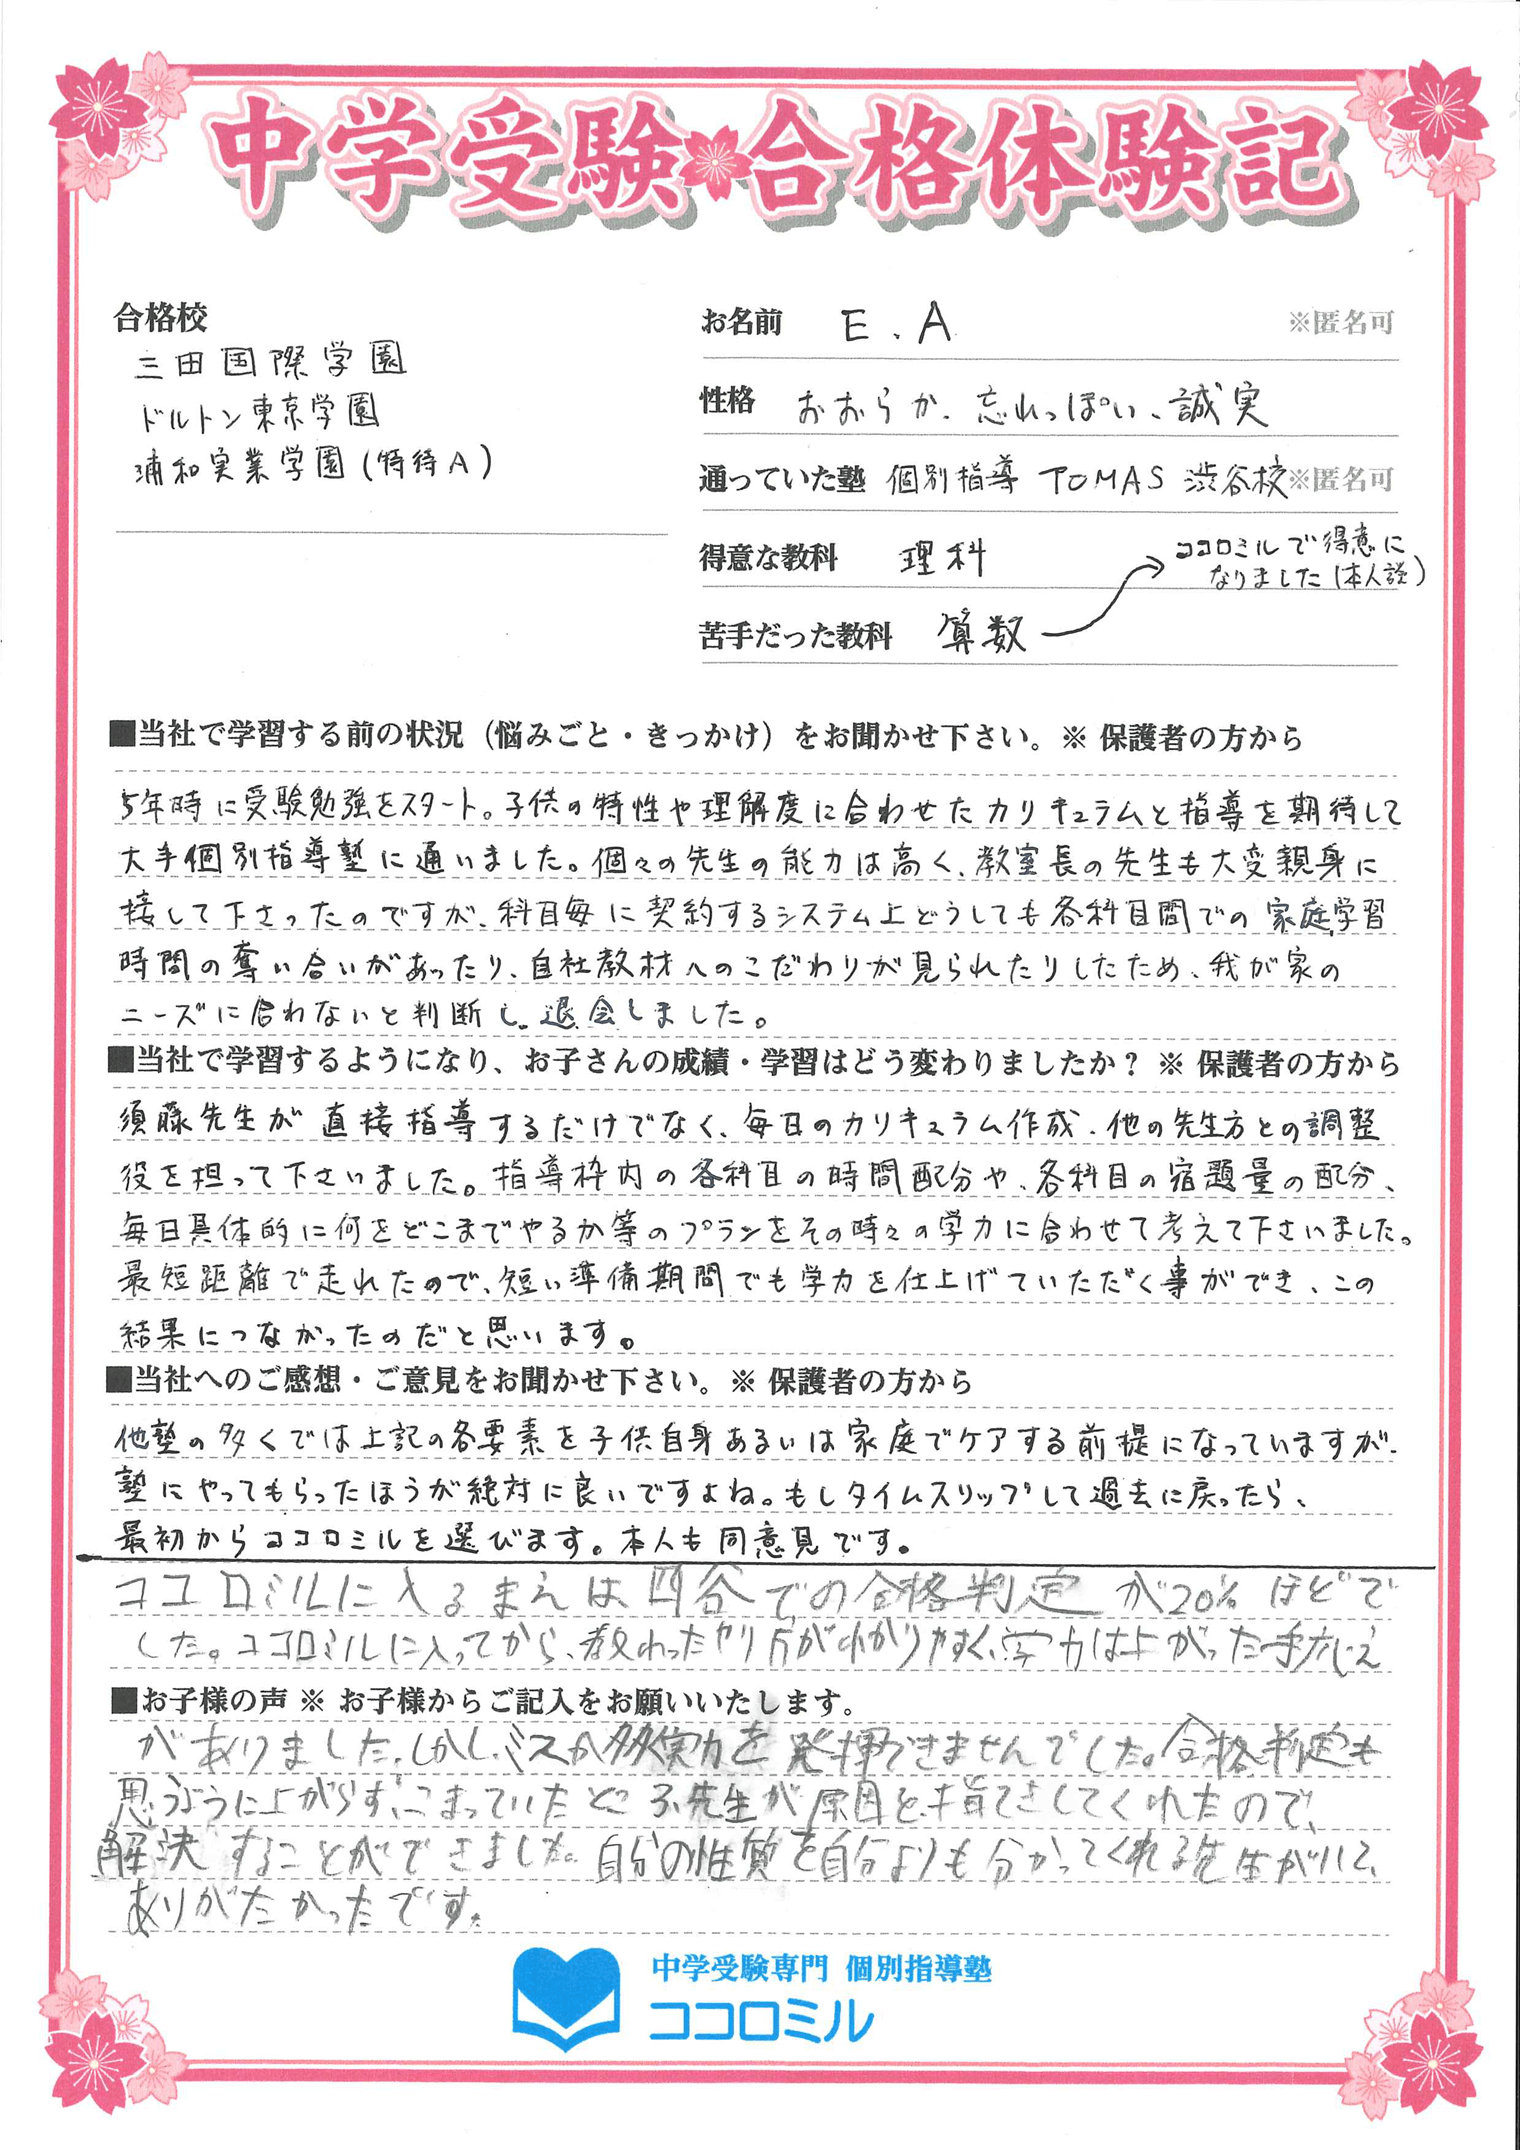 中学受験 合格体験記
合格校
三田国際学園
ドルトン東京学園
浦和実業学園(特待A)
お名前 E.A ※匿名可
性格 おおらか、忘れっぽい、誠実
通っていた塾 個別指導 TOMAS 渋谷校 ※匿名可
得意な教科 理科
ココロミルで得意に
なりました(本人談)
苦手だった教科 算数
■当社で学習する前の状況（悩みごと・きっかけ）をお聞かせ下さい。※ 保護者の方から
5年時に受験勉強をスタート。子供の特性や理解度に合わせたカリキュラムと指導を期待して
大手個別指導塾に通いました。個々の先生の能力は高く、教室長の先生も大変親身に
接して下さったのですが、科目毎に契約するシステム上どうしても各科目間での家庭学習
時間の奪い合いがあったり、自社教材へのこだわりが見られたりしたため、我が家の
ニーズに合わないと判断し、退会しました。
■当社で学習するようになり、お子さんの成績・学習はどう変わりましたか？ ※ 保護者の方から
須藤先生が直接指導するだけでなく、毎日のカリキュラム作成、他の先生方との調整
役を担って下さいました。指導枠内の各科目の時間配分や、各科目の宿題量の配分、
毎日具体的に何をどこまでやるか等のプランをその時々の学力に合わせて考えて下さいました。
最短距離で走れたので、短い準備期間でも学力を仕上げていただく事ができ、この
結果につながったのだと思います。
■当社へのご感想・ご意見をお聞かせ下さい。※ 保護者の方から
他塾の多くでは上記の各要素を子供自身あるいは家庭でケアする前提になっていますが、
塾にやってもらったほうが絶対に良いですよね。もしタイムスリップして過去に戻ったら、
最初からココロミルを選びます。本人も同意見です。
ココロミルに入るまえは四谷での合格判定が20%ほどで
した。ココロミルに入ってから、教わったやり方がわかりやすく、学力は上がった手応え
■お子様の声 ※ お子様からご記入をお願いいたします。
がありました。しかし、ミスが多く実力を発揮できませんでした。合格判定も
思うように上がらず、こまっていたところ、先生が原因を指てきしてくれたので、
解決することができました。自分の性質を自分よりも分かってくれる先生がいて、
ありがたかったです。
中学受験専門 個別指導塾
ココロミル